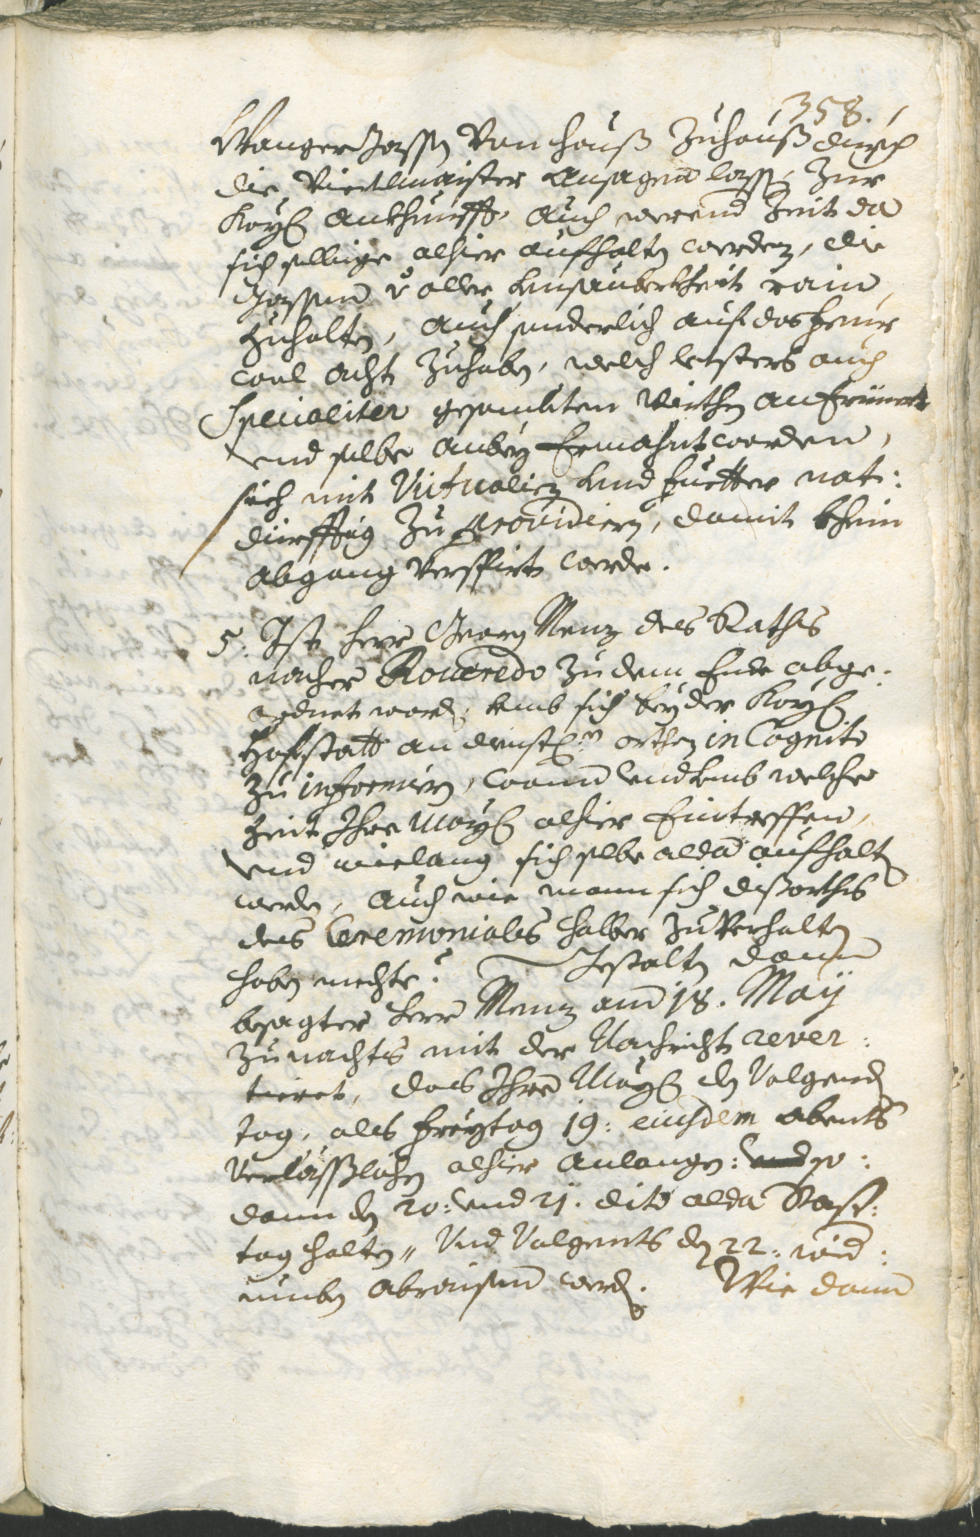 358.
Wanger Gassen von Hauß zu Hauß durch
die Viertlmaister ansagen lassen, zur
Kay: ankhunfft, auch werend Zeit da
sich selbige alhier aufhalten werden, die
Gassen v aller Unsauberkheit rain
zuhalten, auch sonderlich auf das Feur
wol acht zuhaben, welch letsters auch
Specialiter gesambten Würthen
und selbe anbey Ermahnt worden,
sich mit Victualien und Fuetter not:
dürfftig zu providiern, damit khein
abgang verspirt werde.
5. Ist Herr Georg Menz des Raths
nacher Roueredo zu dem Ende abge:
ordnet word, umb sich bey der Kay:
Hofstatt an denen orthen in Cognito
zu informiern, wann und umb welche
Zeit Ihre May: alhier Eintreffen,
und wielang sich selbe alda aufhalten
werde, auch wie mann sich disorths
des Ceremonials halber zu verhalten
haben mechte? Gestalten dann
besagter Herr Menz am 18. May
zu nachts mit der Nachricht rever:
tieret, das Ihre May: den Volgend
tag, als Freytag 19: eiusdem abents
verläßlichen alhier anlangen: so:
dann den 20: und 21. dito alda Rast:
tag halten, und Volgents den 22: wid:
rumben abraisen werde. Wie dann